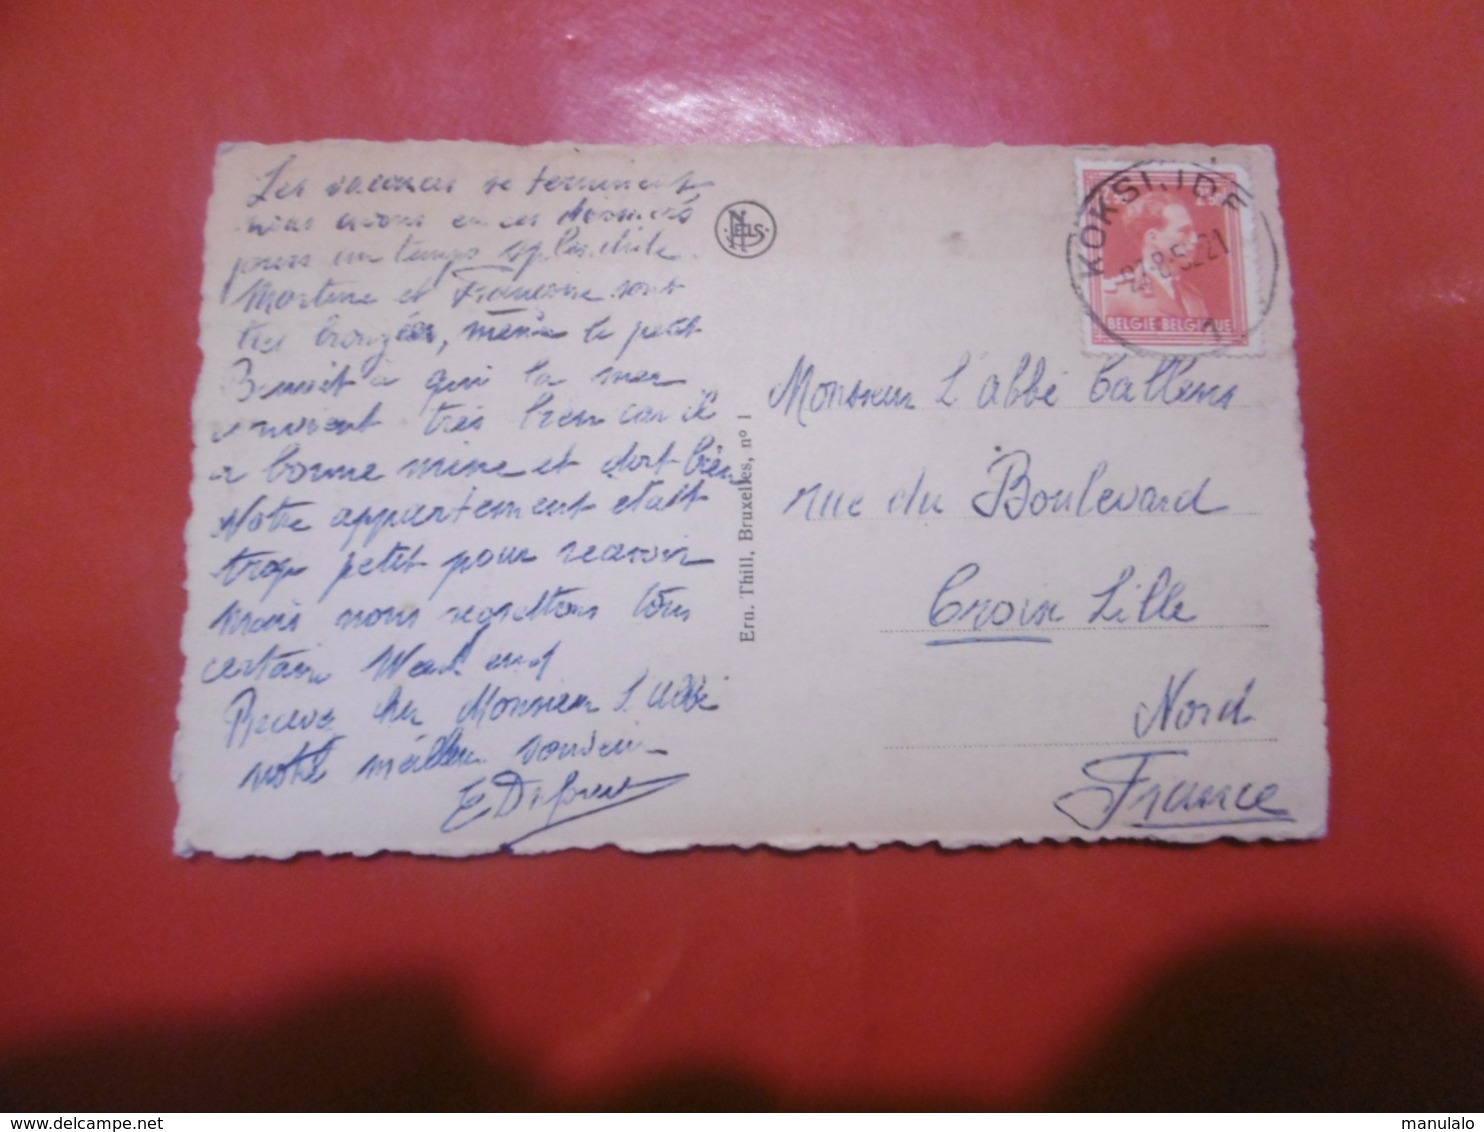 Les vacances se terminent
nous avons eu ces derniers
jours un temps splendide.
Martine et Françoise sont
très bronzées, même le petit
Benoit à qui la mer
convient très bien car il
a bonne mine et dort bien
Notre appartement etait
trop petit pour recevoir
mais nous regrettons
certain Week end
Recevez cher Monsieur L'abbé
notre meilleur souvenir
NELS
Ern. Thill, Bruxelles, n° 1
KOKSIJDE
8.52.21
1
BELGIE BELGIQUE
Monsieur L'abbé Callens
rue du Boulevard
Croix Lille
Nord
France
delcampe.net
manulalo